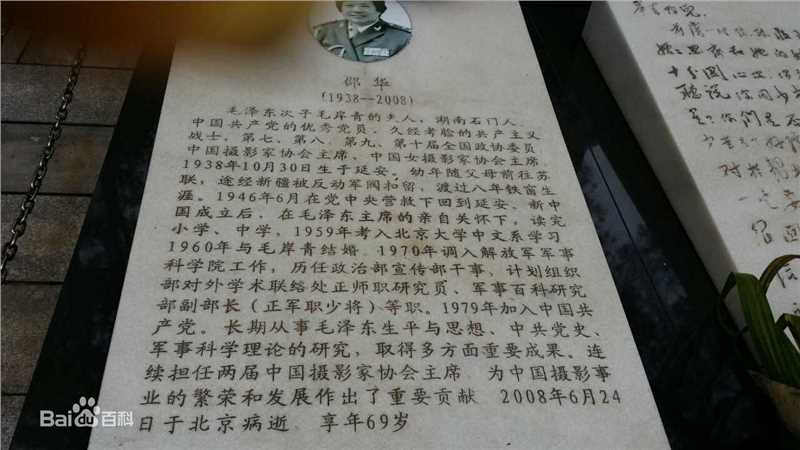 邵华
(1938—2008)
毛泽东次子毛岸青的夫人，湖南石门人，
中国共产党的优秀党员、久经考验的共产主义
战士，第七、第八、第九、第十届全国政协委员，
中国摄影家协会主席、中国女摄影家协会主席
1938年10月30日生于延安。幼年随父母前往苏
联，途经新疆被反动军阀扣留，渡过八年铁窗生
涯。1946年6月在党中央营救下回到延安、新中
国成立后，在毛泽东主席的亲自关怀下，读完
小学、中学，1959年考入北京大学中文系学习
1960年与毛岸青结婚，1970年调入解放军军事
科学院工作，历任政治部宣传部干事，计划组织
部对外学术联络处正师职研究员、军事百科研究
部副部长（正军职少将）等职。1979年加入中国共
产党。长期从事毛泽东生平与思想、中共党史、
军事科学理论的研究，取得多方面重要成果。连
续担任两届中国摄影家协会主席 为中国摄影事
业的繁荣和发展作出了重要贡献 2008年6月24
日于北京病逝 享年69岁
Bai百科